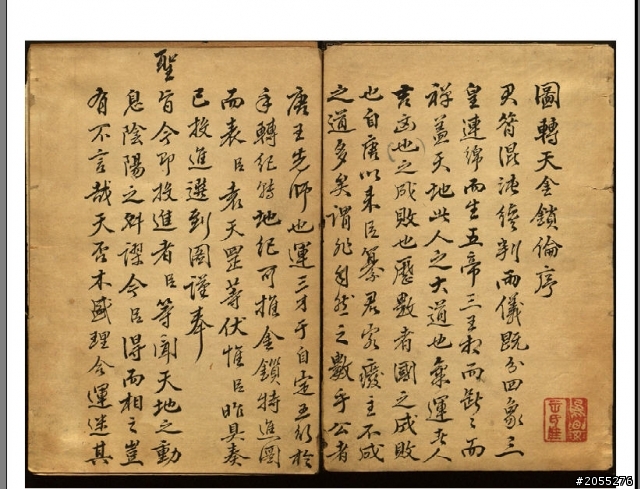 圖轉天金鎖倫序
混沌 判而儀既分四象三
皇連綿而生五帝三王 而 而
禪蓋天地此人之大道也氣運 人
言凶也之成敗也歷數者國之成敗
也自唐以來臣纂君 廢主不成
之道多矣謂非自然之數乎公者
唐王先師也運三才于自定五行於
轉紀 地紀可推金鎖特進圖
而表臣袁天罡等伏惟臣昨具奏
已投進選到圖謹奉
聖
旨今即投進者臣等聞天地之動
息陰陽之 謬今臣得而相之豈
有不言哉天否木盛理合運 其
#2055276